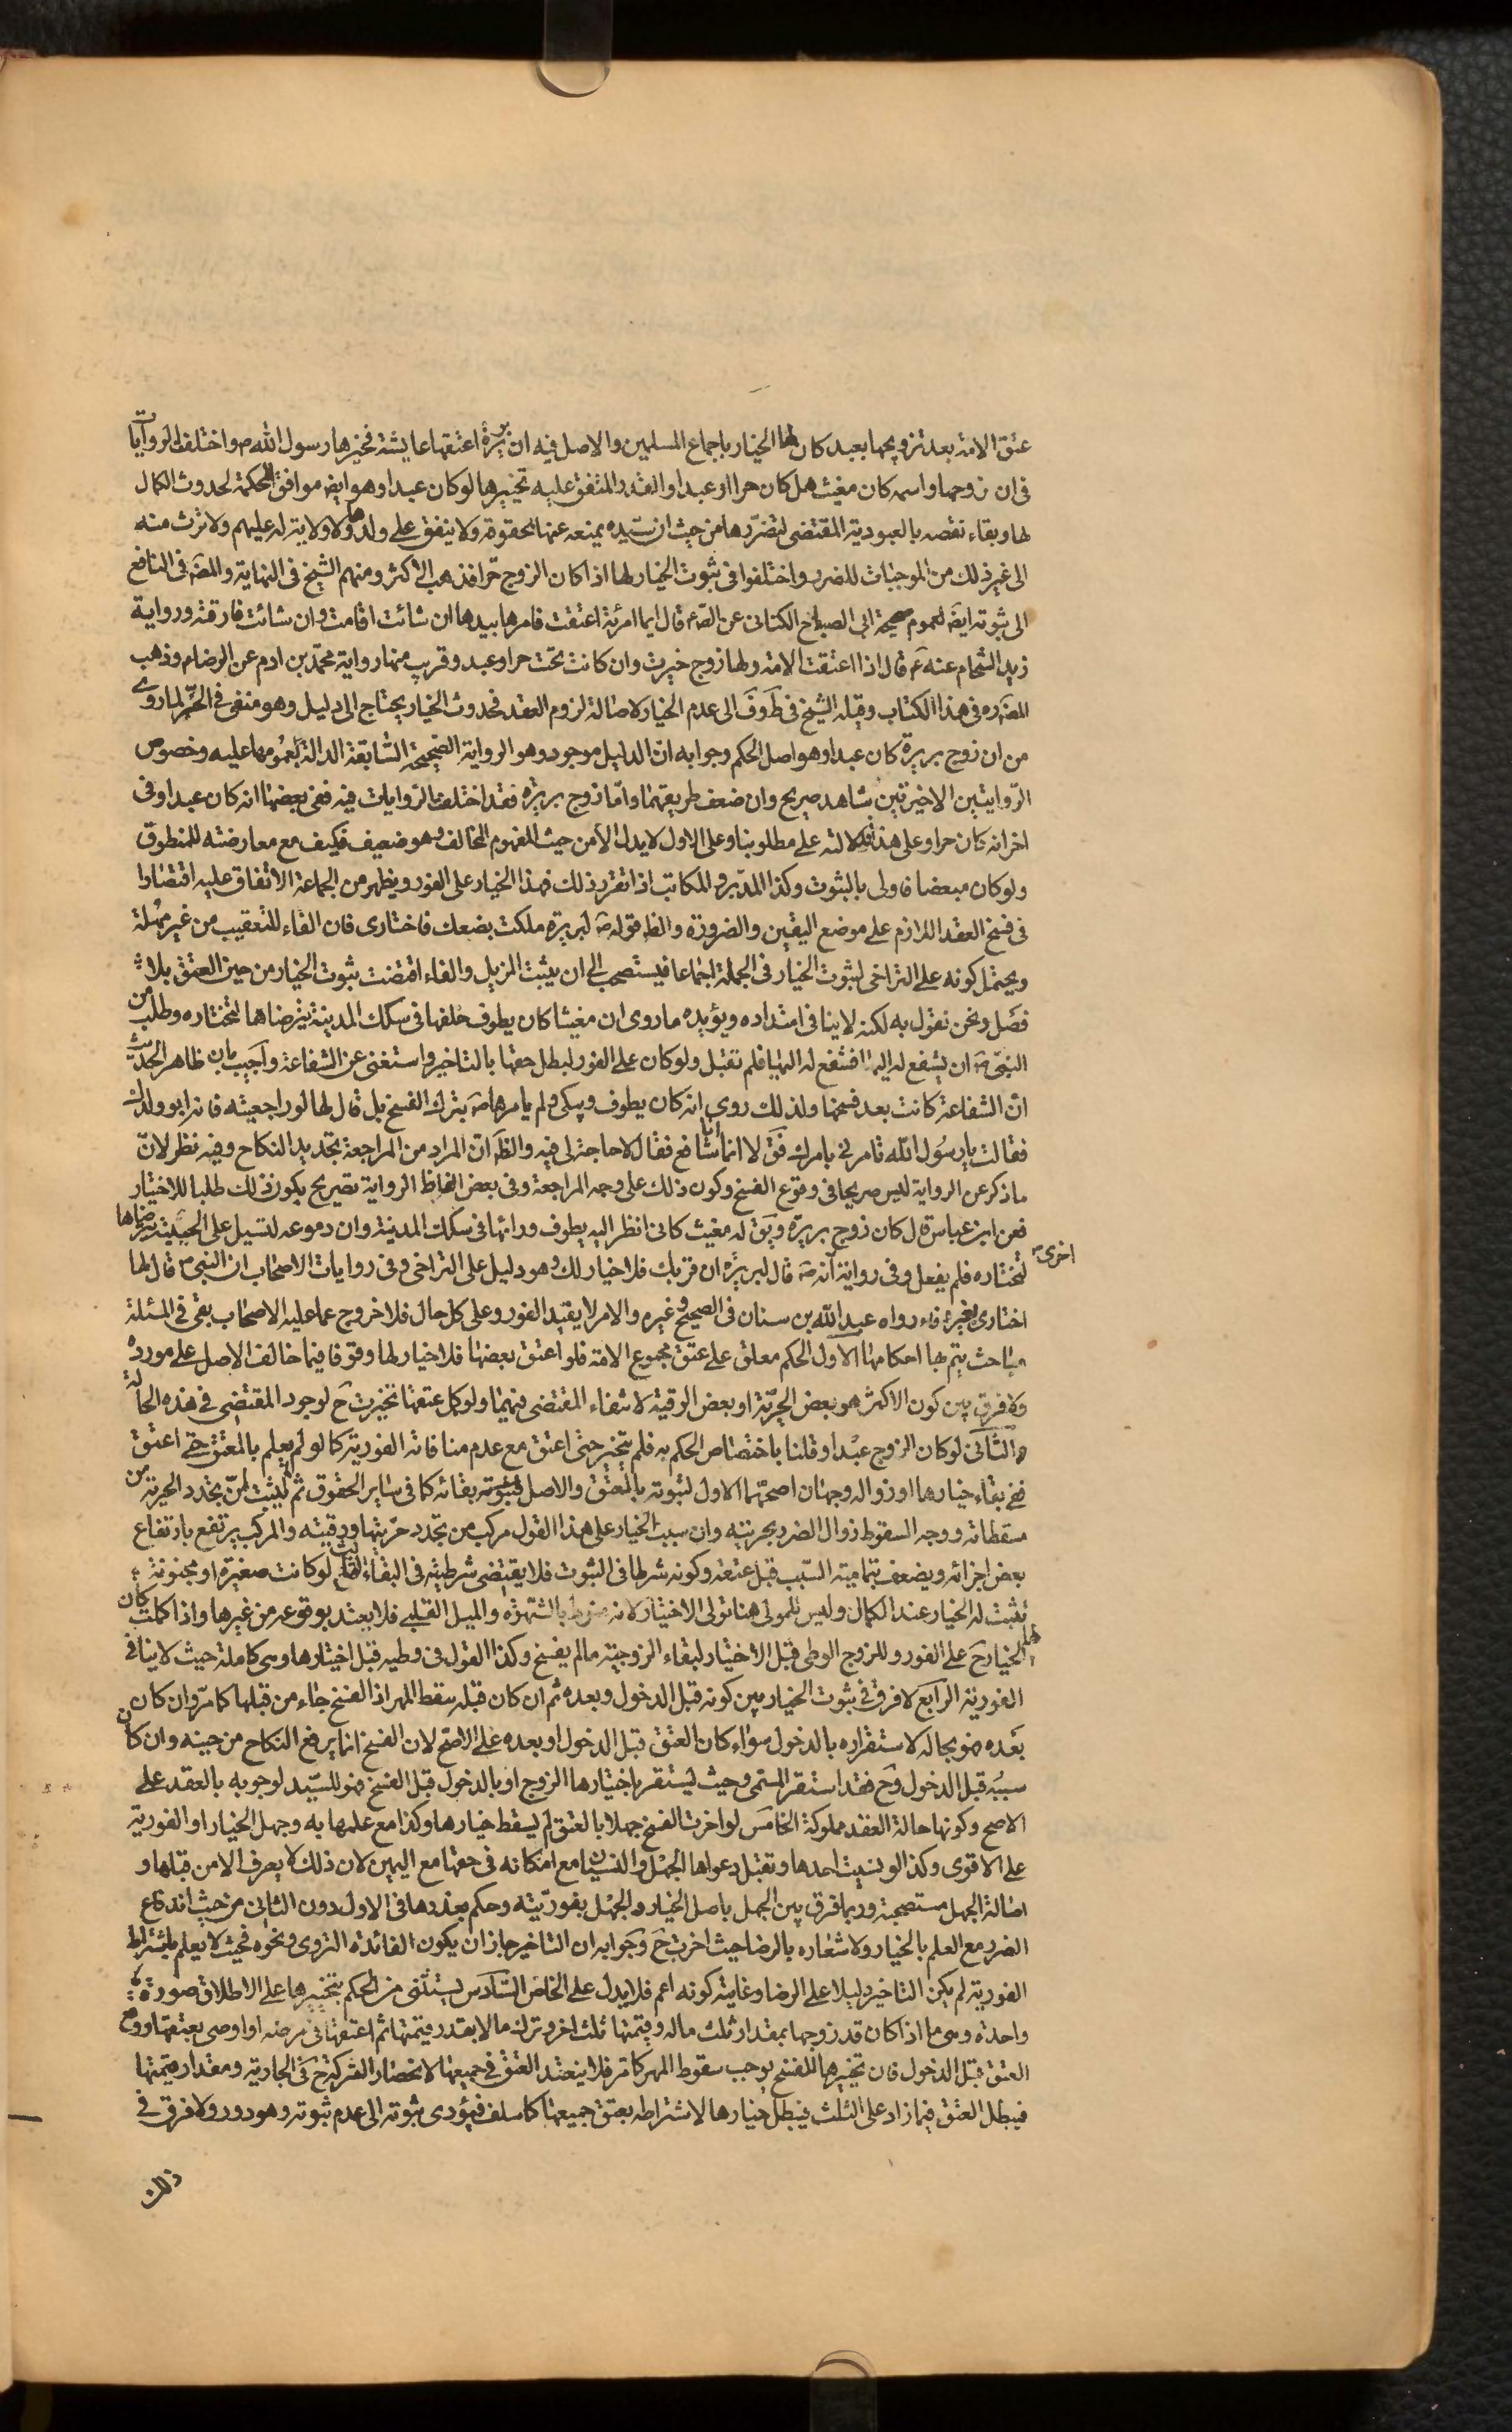 عتق الامة بعد تزويجها بعبد كان لها الخيار باجماع المسلمين والاصل فيه ان بريرة اعتقها عايشة فخيرها رسول الله ص واختلف الروايات
فى ان زوجها واسمه كان مغيث هل كان حرا او عبدا والقدر المتفق عليه تخييرها لو كان عبدا وهو ايض موافق للحكمة لحدوث الكمال
لها وبقاء نقصه بالعبودية المقتضى لتضررها من حيث ان سيده يمنعه عنها لحقوقه ولا ينفق على ولدها ولا ولاية له عليهم ولا ترث منه
الى غير ذلك من الموجبات للضرر واختلفوا فى ثبوت الخيار لها اذا كان الزوج حرا فذهب الاكثر ومنهم الشيخ فى النهاية والمص فى النافع
الى ثبوته ايض لعموم صحيحة ابى الصباح الكنانى عن الص ع قال ايما امرئة اعتقت فامرها بيدها ان شائت اقامت وان شائت فارقته ورواية
زيد الشحام عنه ع قال اذا اعتقت الامة ولها زوج خيرت وان كانت تحت حر او عبد وقريب منها رواية محمد بن ادم عن الرضا م وذهب
المص ره فى هذا الكتاب وقبله الشيخ فى ط وف الى عدم الخيار لاصالة لزوم العقد فحدوث الخيار يحتاج الى دليل وهو منفى فى الحر لما روى
من ان زوج بريرة كان عبدا وهو اصل الحكم وجوابه ان الدليل موجود وهو الرواية الصحيحة السابقة الدالة بعمومها عليه وخصوص
الروايتين الاخيرتين شاهد صريح وان ضعف طريقهما واما زوج بريرة فقد اختلف الروايات فيه ففى بعضها انه كان عبدا وفى
اخر انه كان حرا وعلى هذا فدلالته على مطلوبنا وعلى الاول لا يدل الا من حيث المفهوم المخالف وهو ضعيف فكيف مع معارضته للمنطوق
ولو كان مبعضا فاولى بالثبوت وكذا المدبر والمكاتب اذا تقرر ذلك فهذا الخيار على الفور ويظهر من الجماعة الاتفاق عليه اقتصارا
فى فسخ العقد اللازم على موضع اليقين والضرورة والظ قوله ص لبريرة ملكت بضعك فاختارى فان الفاء للتعقيب من غير مهلة
ويحتمل كونه على التراخى لثبوت الخيار فى الجملة اجماعا فيستصحب الى ان يثبت المزيل والفاء اقتضت ثبوت الخيار من حين العتق بلا
فصل ونحن نقول به لكنه لا ينافى امتداده ويؤيده ما روى ان مغيثا كان يطوف خلفها فى سكك المدينة يترضاها لتختاره وطلب من
النبى ص ان يشفع له اليها فشفع له اليها فلم تقبل ولو كان على الفور لبطل حقها بالتاخير واستغنى عن الشفاعة واجيب بان ظاهر الحديث
ان الشفاعة كانت بعد فسخها ولذلك روى انه كان يطوف ويبكى ولم يامرها ص بترك الفسخ بل قال لها لو راجعتيه فانه ابو ولدك
فقالت يا رسول الله تامرنى بامرك فق لا انما انا شافع فقال لا حاجة لى فيه والظ ان المراد من المراجعة تجديد النكاح وفيه نظر لان
ما ذكر عن الرواية ليس صريحا فى وقوع الفسخ وكون ذلك على وجه المراجعة وفى بعض الفاظ الرواية تصريح بكون ذلك طلبا للاختيار
فعن ابن عباس قال كان زوج بريرة ويق له مغيث كانى انظر اليه يطوف ورائها فى سكك المدينة وان دموعه لتسيل على لحيته يترضاها
لتختاره فلم يفعل وفى رواية اخرى انه ص قال لبريرة ان قربك فلا خيار لك وهو دليل على التراخى وفى روايات الاصحاب ان النبى ص قال لها
اختارى بغير فاء رواه عبد الله بن سنان فى الصحيح وغيره والامر لا يفيد الفور وعلى كل حال فلا خروج عما عليه الاصحاب بقى فى المسئلة
مباحث يتم بها احكامها الاول الحكم معلق على عتق مجموع الامة فلو اعتق بعضها فلا خيار لها وقوفا فيما خالف الاصل على مورده
ولا فرق بين كون الاكثر هو بعض الحرية او بعض الرقية لانتفاء المقتضى فيهما ولو كمل عتقها تخيرت ح لوجود المقتضى فى هذه الحالة
والثانى لو كان الزوج عبدا وقلنا باختصاص الحكم به فلم يتخير حتى اعتق مع عدم منافاته الفورية كما لو لم يعلم بالعتق حتى اعتق
ففى بقاء خيارها او زواله وجهان اصحهما الاول لثبوته بالعتق والاصل بقائه كما فى ساير الحقوق ثم لم يثبت ان تجدد الحرية من
مسقطاته ووجه السقوط زوال الضرر بحريته وان سبب الخيار على هذا القول مركب من تجدد حريتها ورقيته والمركب يرتفع بارتفاع
بعض اجزائه ويضعف بتمامية السبب قبل عتقه وكونه شرطا فى الثبوت فلا يقتضى شرطيته فى البقاء الثالث لو كانت صغيرة او مجنونة
ثبت له الخيار عند الكمال وليس للمولى هنا تولى الاختيار لانه منوط بالشهوة والميل القلبى فلا يعتد بوقوعه من غيرها واذا كملت كان
لها الخيار ح على الفور وللزوج الوطى قبل الاختيار لبقاء الزوجية ما لم يفسخ وكذا القول فى وطيه قبل اختيارها وهى كاملة حيث لا ينافى
الفورية الرابع لا فرق فى ثبوت الخيار بين كونه قبل الدخول وبعده ثم ان كان قبله سقط المهر اذ الفسخ جاء من قبلها كما مر وان كان
بعده فهو بحاله لاستقراره بالدخول سواء كان العتق قبل الدخول او بعده على الاصح لان الفسخ انما يرفع النكاح من حينه وان كان
سببه قبل الدخول وح فقد استقر المسمى وحيث يستقر باختيارها الزوج او بالدخول قبل الفسخ فهو للسيد لوجوبه بالعقد على
الاصح وكونها حالة العقد مملوكة الخامس لو اخرت الفسخ جهلا بالعتق لم يسقط خيارها وكذا مع علمها به وجهل الخيار او الفورية
على الاقوى وكذا لو نسيت احدها وتقبل دعواها الجهل والنسيان مع امكانه فى حقها مع اليمين لان ذلك لا يعرف الا من قبلها و
اصالة الجهل مستصحبة وربما فرق بين الجهل باصل الخيار والجهل بفوريته وحكم بعذرها فى الاول دون الثانى من حيث اندفاع
الضرر مع العلم بالخيار ولاشعاره بالرضا حيث اخرت ح وجوابه ان التاخير جاز ان يكون لفائدة التروى ونحوه فحيث لا يعلم باشتراط
الفورية لم يكن التاخير دليلا على الرضا وغايته كونه اعم فلا يدل على الخاص السادس يستثنى من الحكم بتخييرها على الاطلاق صورة
واحدة وهى ما اذا كان قد زوجها بمقدار ثلث ماله وقيمتها ثلث اخر وترك مالا بقدر قيمتها ثم اعتقها فى مرضه او اوصى بعتقها ووقع
العتق قبل الدخول فان تخييرها للفسخ يوجب سقوط المهر كما مر فلا ينفذ العتق فى جميعها لانحصار التركة ح فى الجارية ومقدار قيمتها
فيبطل العتق فيما زاد على الثلث فيبطل خيارها لاشتراطه بعتق جميعها كما سلف فيؤدى ثبوته الى عدم ثبوته وهو دور ولا فرق فى
ذلك